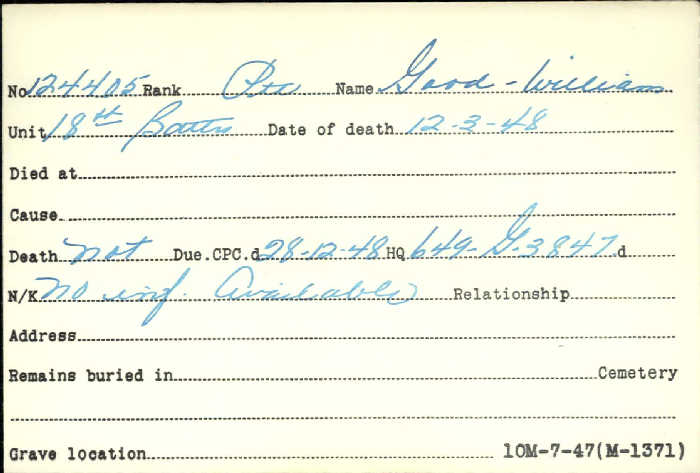 No 124405 Rank Pte Name Good - William
Unit 18th Battn Date of death 12-3-48
Died at
Cause
Death not Due.CPC.d 28-12-48 HQ 649-G-3847 d
N/K no inf. Available Relationship
Address
Remains buried in Cemetery
Grave location 10M-7-47(M-1371)